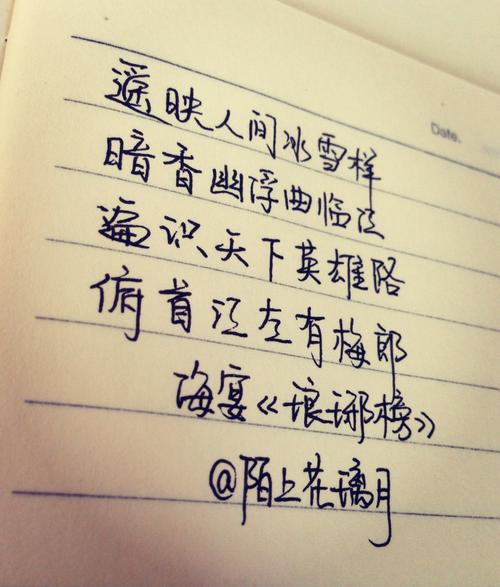 Date.
遥映人间冰雪样
暗香幽浮曲临江
遍识天下英雄路
俯首江左有梅郎
海宴《琅琊榜》
@陌上花璃月